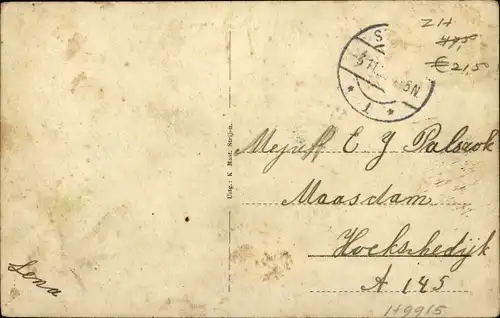 ZH
47,5
€21,5
S
5 11
5N
T
Uitg.: K. Mast, Strijen.
Mejuff C J Palsrok
Maasdam
Hoekschedijk
A 145
Lena
149915